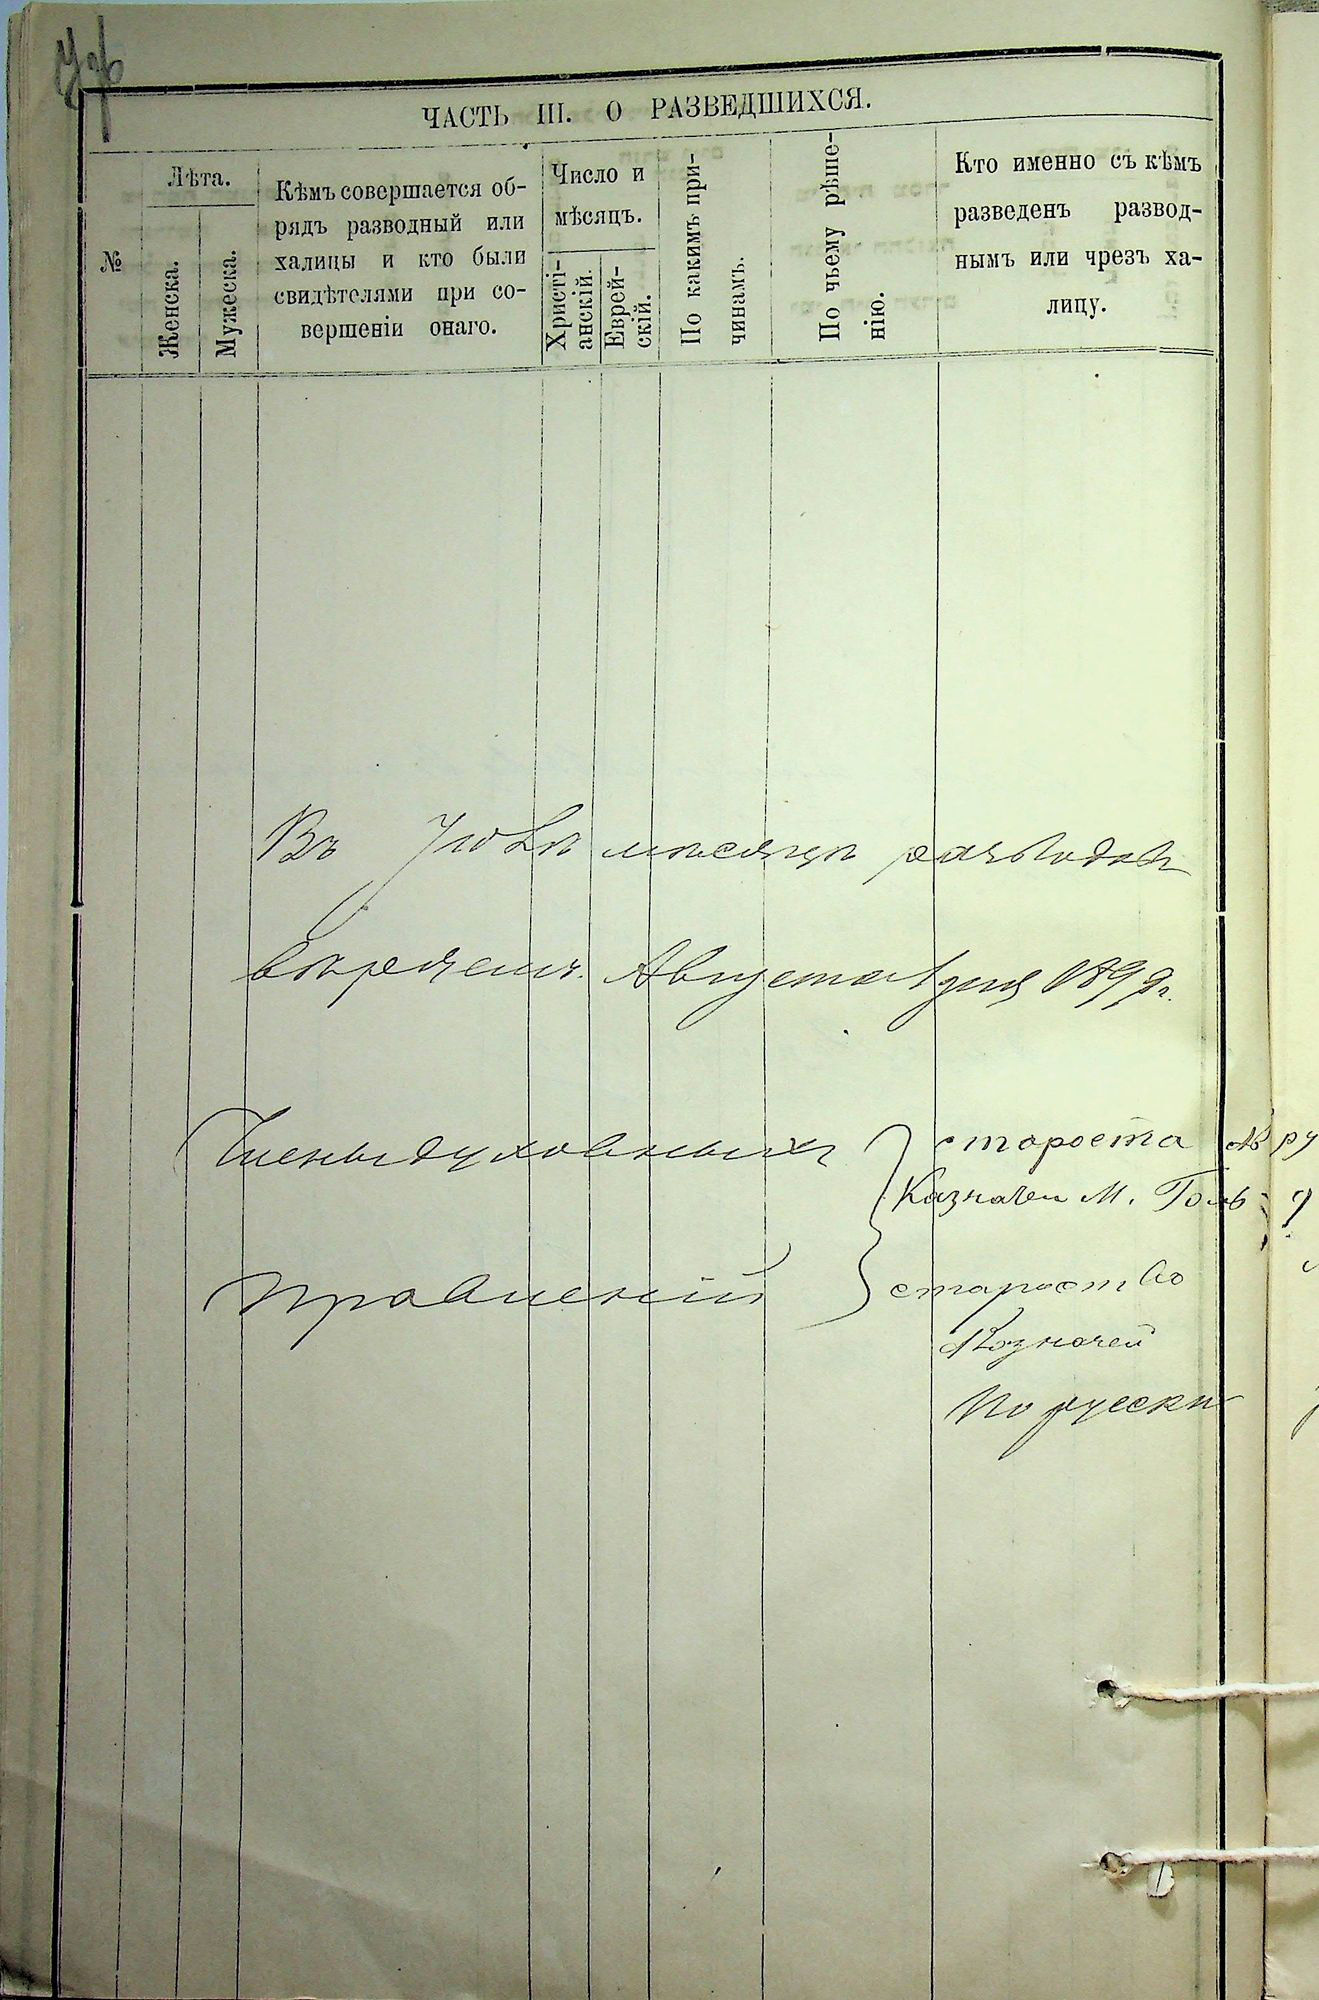 ЧАСТЬ III. О РАЗВЕДШИХСЯ.
№
Лѣта.
Женска.
Мужеска.
Кѣмъ совершается об-
рядъ разводный или
халицы и кто были
свидѣтелями при со-
вершеніи онаго.
Число и
мѣсяцъ.
Христі-
анскій.
Еврей-
скій.
По какимъ при-
чинамъ.
По чьему рѣше-
нію.
Кто именно съ кѣмъ
разведенъ развод-
нымъ или чрезъ ха-
лицу.
Въ Іюлѣ мѣсяцѣ разводовъ
Августа 1 дня 189
Члены духовныхъ
правленій
староста
Казначеи М.Голь
староство
Казначей
По русски